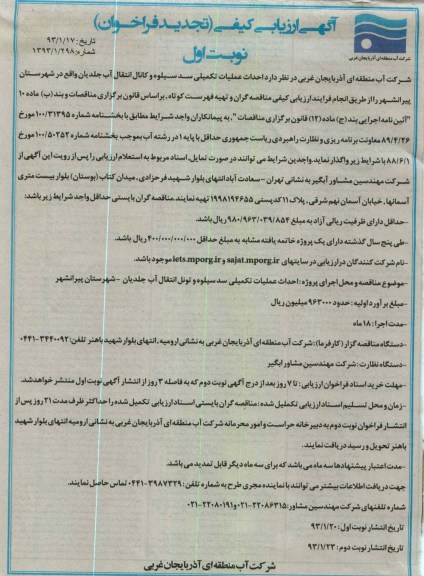 آگهی ارزیابی کیفی (تجدید فراخوان)
نوبت اول
تاریخ: ۹۳/۱/۱۷
شماره: ۱۳۹۳/۱/۲۹۸
شرکت آب منطقه ای آذربایجان غربی
شرکت آب منطقه ای آذربایجان غربی در نظر دارد احداث عملیات تکمیلی سد سیلوه و کانال انتقال آب جلدیان واقع در شهرستان
پیرانشهر را از طریق انجام فرایند ارزیابی کیفی مناقصه گران و تهیه فهرست کوتاه، براساس قانون برگزاری مناقصات و بند (ب) ماده ۱۰
"آئین نامه اجرایی بند (ج) ماده (۱۲) قانون برگزاری مناقصات"، به پیمانکاران واجد شرایط مطابق با بخشنامه شماره ۱۰۰/۳۱۳۹۵ مورخ
۸۹/۴/۲۶ معاونت برنامه ریزی و نظارت راهبردی ریاست جمهوری حداقل با پایه ۱ در رشته آب بموجب بخشنامه شماره ۱۰۰/۵۰۲۵۲ مورخ
۸۸/۶/۱ با شرایط زیر واگذار نماید. واجدین شرایط می توانند در صورت تمایل، اسناد مربوط به استعلام ارزیابی را پس از رویت این آگهی از
شرکت مهندسین مشاور آبگیر به نشانی تهران - سعادت آباد انتهای بلوار شهید فرحزادی، میدان کتاب (بوستان) بلوار بیست متری
آسمانها، خیابان آسمان نهم شرقی، پلاک ۱۱ کدپستی ۱۹۹۸۱۹۴۶۵۵ تهیه نمایند. مناقصه گران بایستی حداقل واجد شرایط زیر باشد:
-حداقل دارای ظرفیت ریالی آزاد به مبلغ ۹۸۰/۹۶۳/۰۳۹/۸۵۴ ریال باشد.
-طی پنج سال گذشته دارای یک پروژه خاتمه یافته مشابه به مبلغ حداقل ۴۰۰/۰۰۰/۰۰۰/۰۰۰ ریال باشد.
-نام شرکت کنندگان در ارزیابی در سایتهای sajat.mporg.ir و iets.mporg.ir موجود باشد.
-موضوع مناقصه و محل اجرای پروژه: احداث عملیات تکمیلی سد سیلوه و تونل انتقال آب جلدیان - شهرستان پیرانشهر
-مبلغ برآورد اولیه: حدود ۹۶۳۰۰۰ میلیون ریال
-مدت اجرا: ۱۸ ماه
-دستگاه مناقصه گزار (کارفرما): شرکت آب منطقه ای آذربایجان غربی به نشانی ارومیه، انتهای بلوار شهید باهنر تلفن: ۳۴۴۰۰۹۲-۰۴۴۱
-دستگاه نظارت: شرکت مهندسین مشاور آبگیر
-مهلت خرید اسناد فراخوان ارزیابی: تا ۷ روز بعد از درج آگهی نوبت دوم که به فاصله ۳ روز از انتشار آگهی نوبت اول منتشر خواهد شد.
-زمان و محل تسلیم اسناد ارزیابی تکمیل شده: مناقصه گران بایستی اسناد ارزیابی تکمیل شده را حداکثر ظرف مدت ۲۱ روز پس از
انتشار فراخوان نوبت دوم به دبیرخانه حراست و امور محرمانه شرکت آب منطقه ای آذربایجان غربی به نشانی ارومیه انتهای بلوار شهید
باهنر تحویل و رسید دریافت نمایند.
-مدت اعتبار پیشنهادها سه ماه می باشد که برای سه ماه دیگر قابل تمدید می باشد.
جهت دریافت اطلاعات بیشتر می توانند با نماینده مجری طرح به شماره تلفن: ۳۹۸۷۳۲۹-۰۴۴۱ تماس حاصل نمایند.
شماره تلفنهای شرکت مهندسین مشاور: ۲۲۰۸۶۳۱۵-۰۲۱ و ۲۲۰۸۰۱۹۱-۰۲۱
تاریخ انتشار نوبت اول: ۹۳/۱/۲۰
تاریخ انتشار نوبت دوم: ۹۳/۱/۲۳
شرکت آب منطقه ای آذربایجان غربی